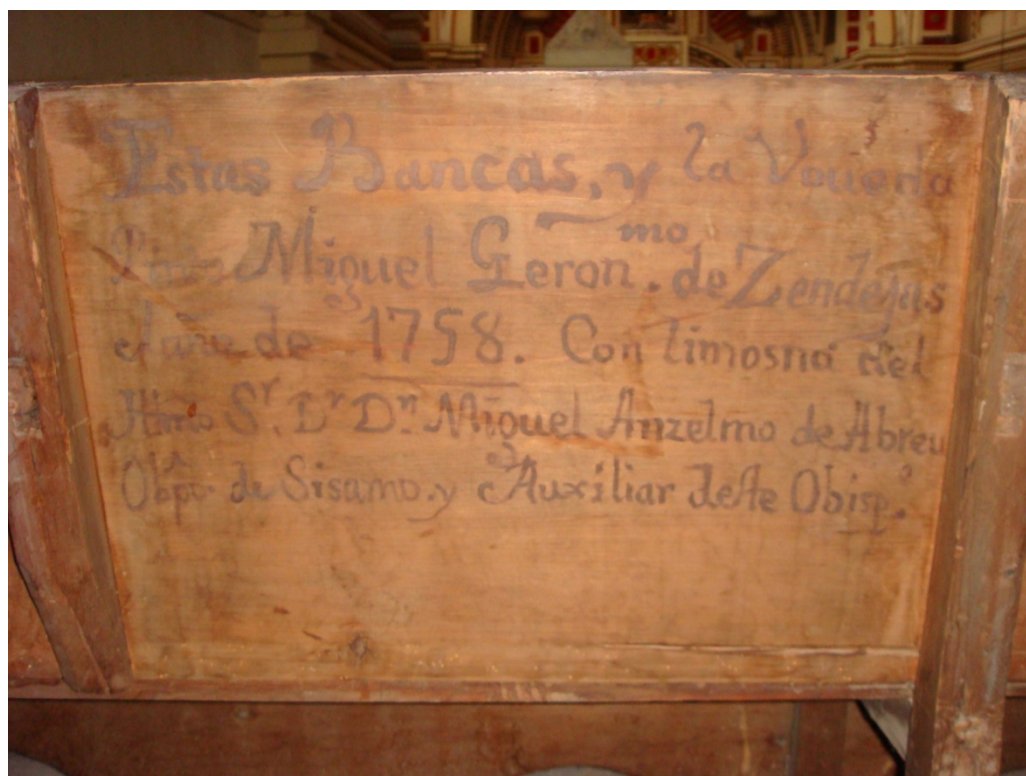 Estas Bancas, y la Voueda
Pintó Miguel Geron.mo de Zendejas
el año de 1758. Con limosna del
Illmo Sr. Dr Dn. Miguel Anzelmo de Abreu
Obpo. de Sisamo. y Auxiliar deste Obisp.o